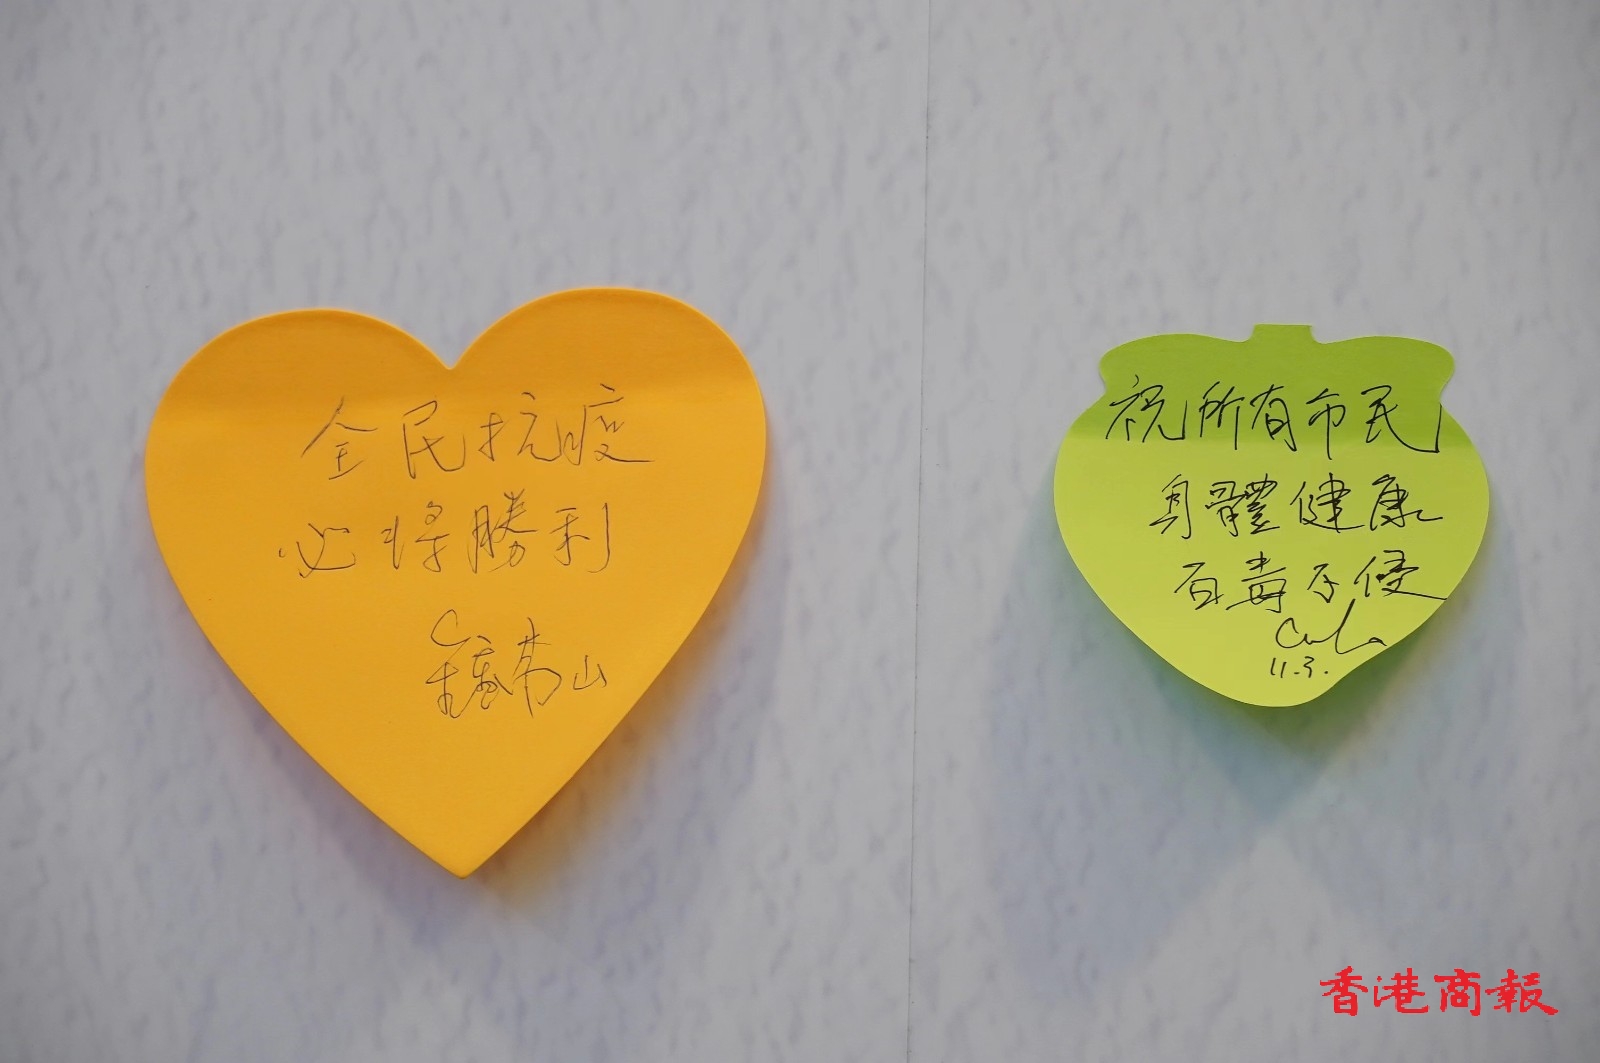 全民抗疫
必将勝利
鍾南山
祝所有市民
身體健康
百毒不侵
11.3.
香港商報